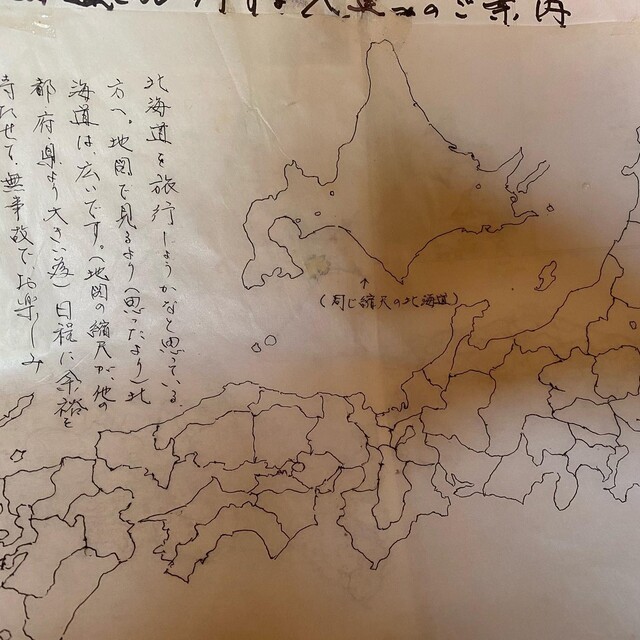 のご案内
北海道を旅行しようかなと思っている
方へ。地図で見るより(思ったより)北
海道は広いです。(地図の縮尺が、他の
都府県より大きい為)日程に余裕を
持たせて、無事故で、お楽しみ
↑
(同じ縮尺の北海道)